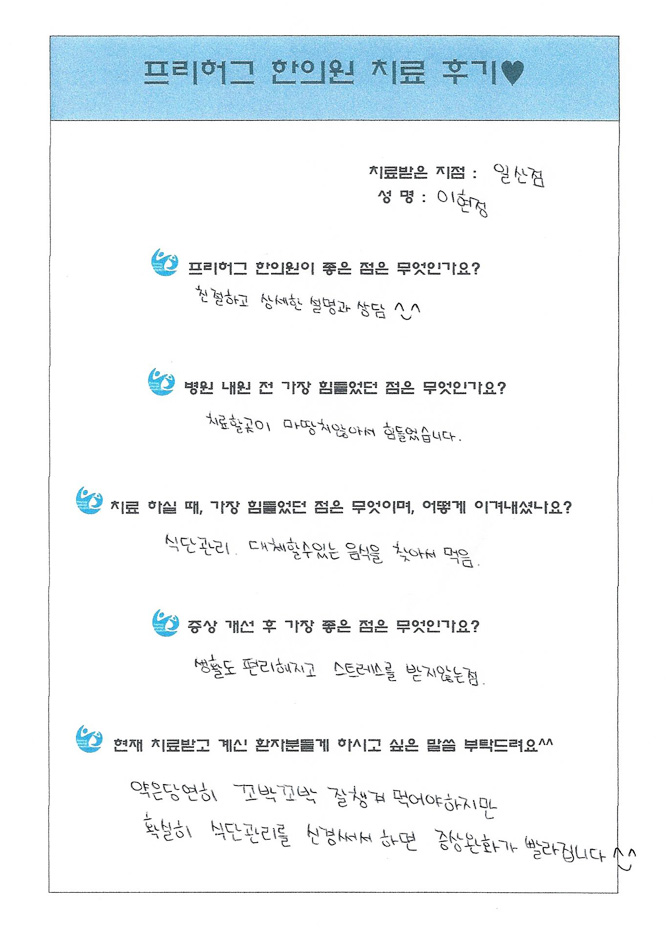 프리허그 한의원 치료 후기♥
치료받은 지점 : 일산점
성 명 : 이현정
프리허그 한의원이 좋은 점은 무엇인가요?
친절하고 상세한 설명과 상담 ^_^
병원 내원 전 가장 힘들었던 점은 무엇인가요?
치료할곳이 마땅치않아서 힘들었습니다.
치료 하실 때, 가장 힘들었던 점은 무엇이며, 어떻게 이겨내셨나요?
식단관리. 대체할수있는 음식을 찾아서 먹음.
증상 개선 후 가장 좋은 점은 무엇인가요?
생활도 편리해지고 스트레스를 받지않는점.
현재 치료받고 계신 환자분들게 하시고 싶은 말씀 부탁드려요^^
약은당연히 꼬박꼬박 잘챙겨 먹어야하지만
확실히 식단관리를 신경써서 하면 증상완화가 빨라집니다 ^_^